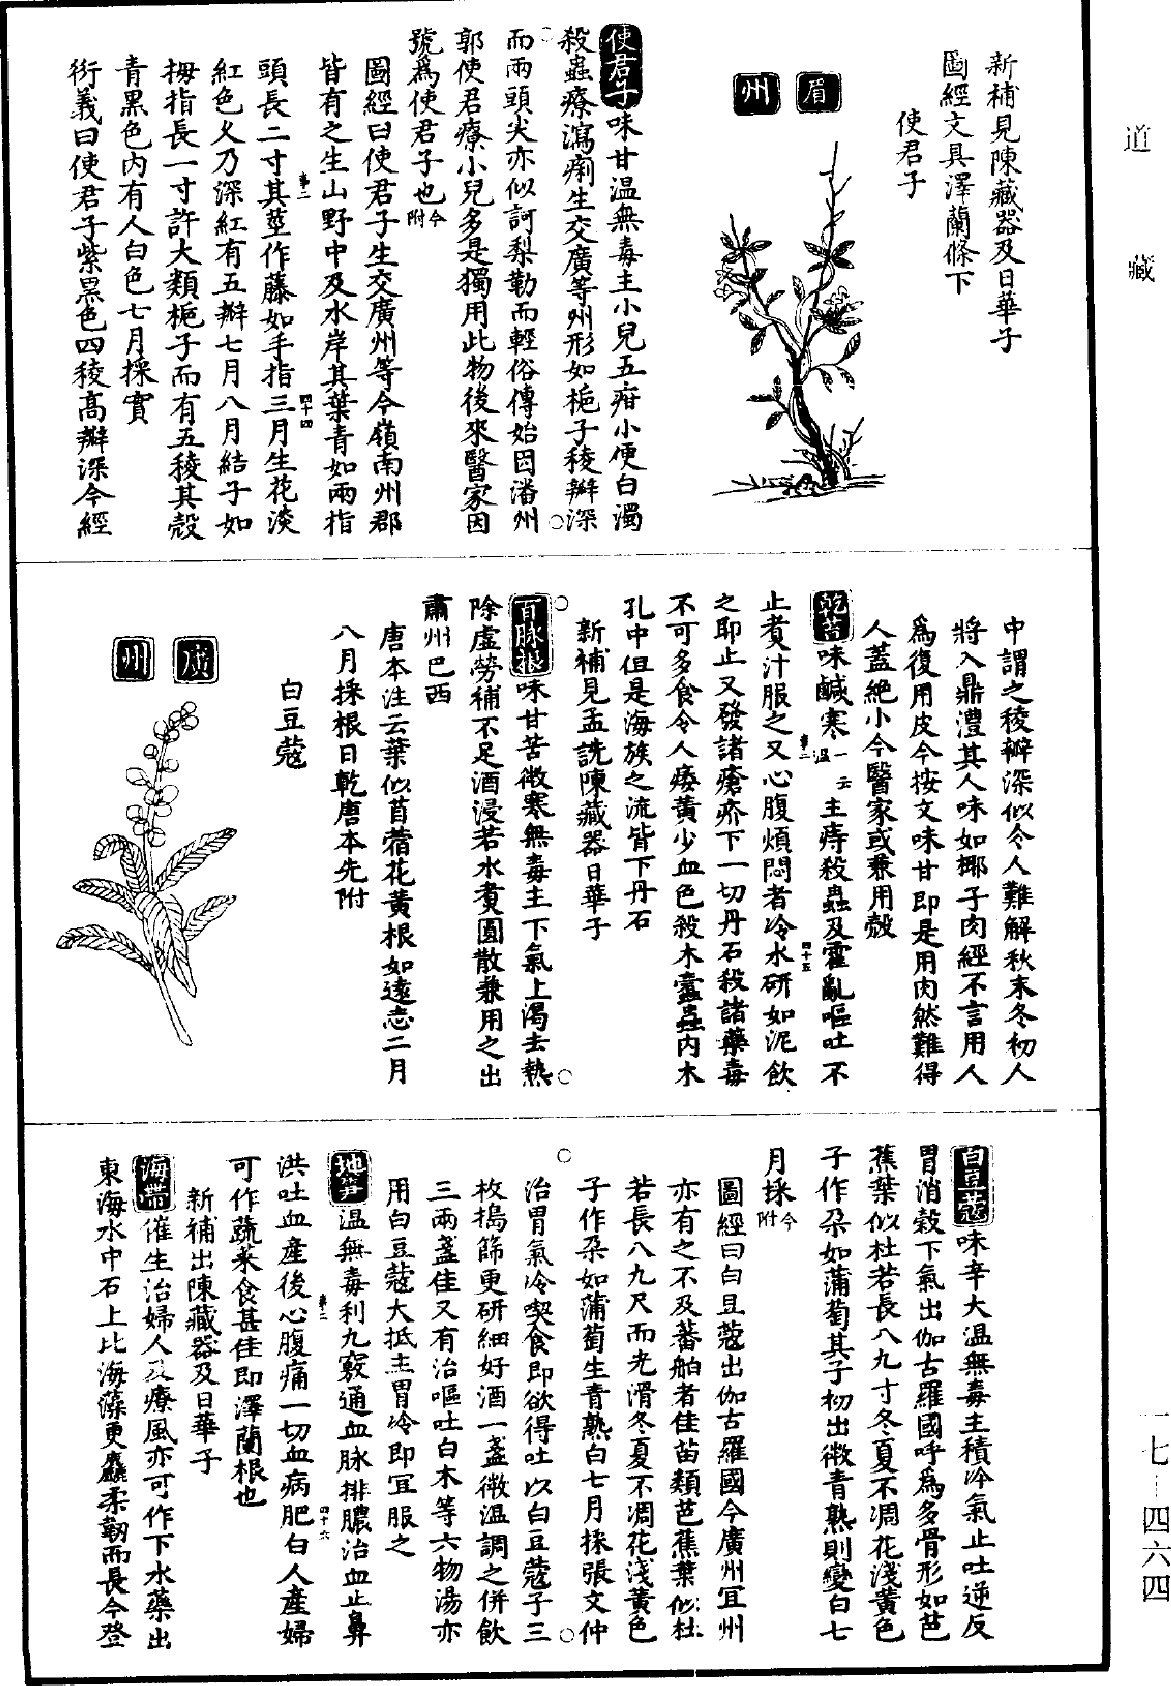 道藏
新補見陳藏器及日華子
圖經文具澤蘭條下
使君子
眉州
使君子味甘温無毒主小兒五疳小便白濁
殺蟲療瀉痢生交廣等州形如梔子稜瓣深
而兩頭尖亦似訶梨勒而輕俗傳始因潘州
郭使君療小兒多是獨用此物後來醫家因
號爲使君子也今附
圖經曰使君子生交廣州等今嶺南州郡
皆有之生山野中及水岸其葉青如兩指
頭長二寸其莖作藤如手指三月生花淡
紅色久乃深紅有五瓣七月八月結子如
拇指長一寸許大類梔子而有五稜其殼
青黑色內有人白色七月採實
衍義曰使君子紫黑色四稜高瓣深今經
中謂之稜瓣深似令人難解秋末冬初人
將入鼎澧其人味如椰子肉經不言用人
爲復用皮今按文味甘即是用肉然難得
人蓋絶小今醫家或兼用殼
乾苔味鹹寒一云温主痔殺蟲及霍亂嘔吐不
止煮汁服之又心腹煩悶者冷水研如泥飲
之即止又發諸瘡疥下一切丹石殺諸藥毒
不可多食令人痿黃少血色殺木蠹蟲內木
孔中但是海族之流皆下丹石
新補見孟詵陳藏器日華子
百脉根味甘苦微寒無毒主下氣止渴去熱
除虛勞補不足酒浸若水煑圓散兼用之出
肅州巴西
唐本注云葉似苜蓿花黃根如遠志二月
八月採根日乾唐本先附
白豆蔻
州
白豆蔻味辛大温無毒主積冷氣止吐逆反
胃消穀下氣出伽古羅國呼爲多骨形如芭
蕉葉似杜若長八九寸冬夏不凋花淺黃色
子作朶如蒲萄其子初出微青熟則變白七
月採今附
圖經曰白豆蔻出伽古羅國今廣州宜州
亦有之不及蕃舶者佳苗類芭蕉葉似杜
若長八九尺而光滑冬夏不凋花淺黃色
子作朶如蒲萄生青熟白七月採張文仲
治胃氣冷喫食即欲得吐以白豆蔻子三
枚搗篩更研細好酒一盞微温調之併飲
三兩盞佳又有治嘔吐白术等六物湯亦
用白豆蔻大抵主胃冷即宜服之
地笋温無毒利九竅通血脉排膿治血止鼻
洪吐血產後心腹痛一切血病肥白人產婦
可作蔬菜食甚佳即澤蘭根也
新補出陳藏器及日華子
海帶催生治婦人及療風亦可作下水藥出
東海水中石上比海藻更麤柔韌而長今登
一七-四六四